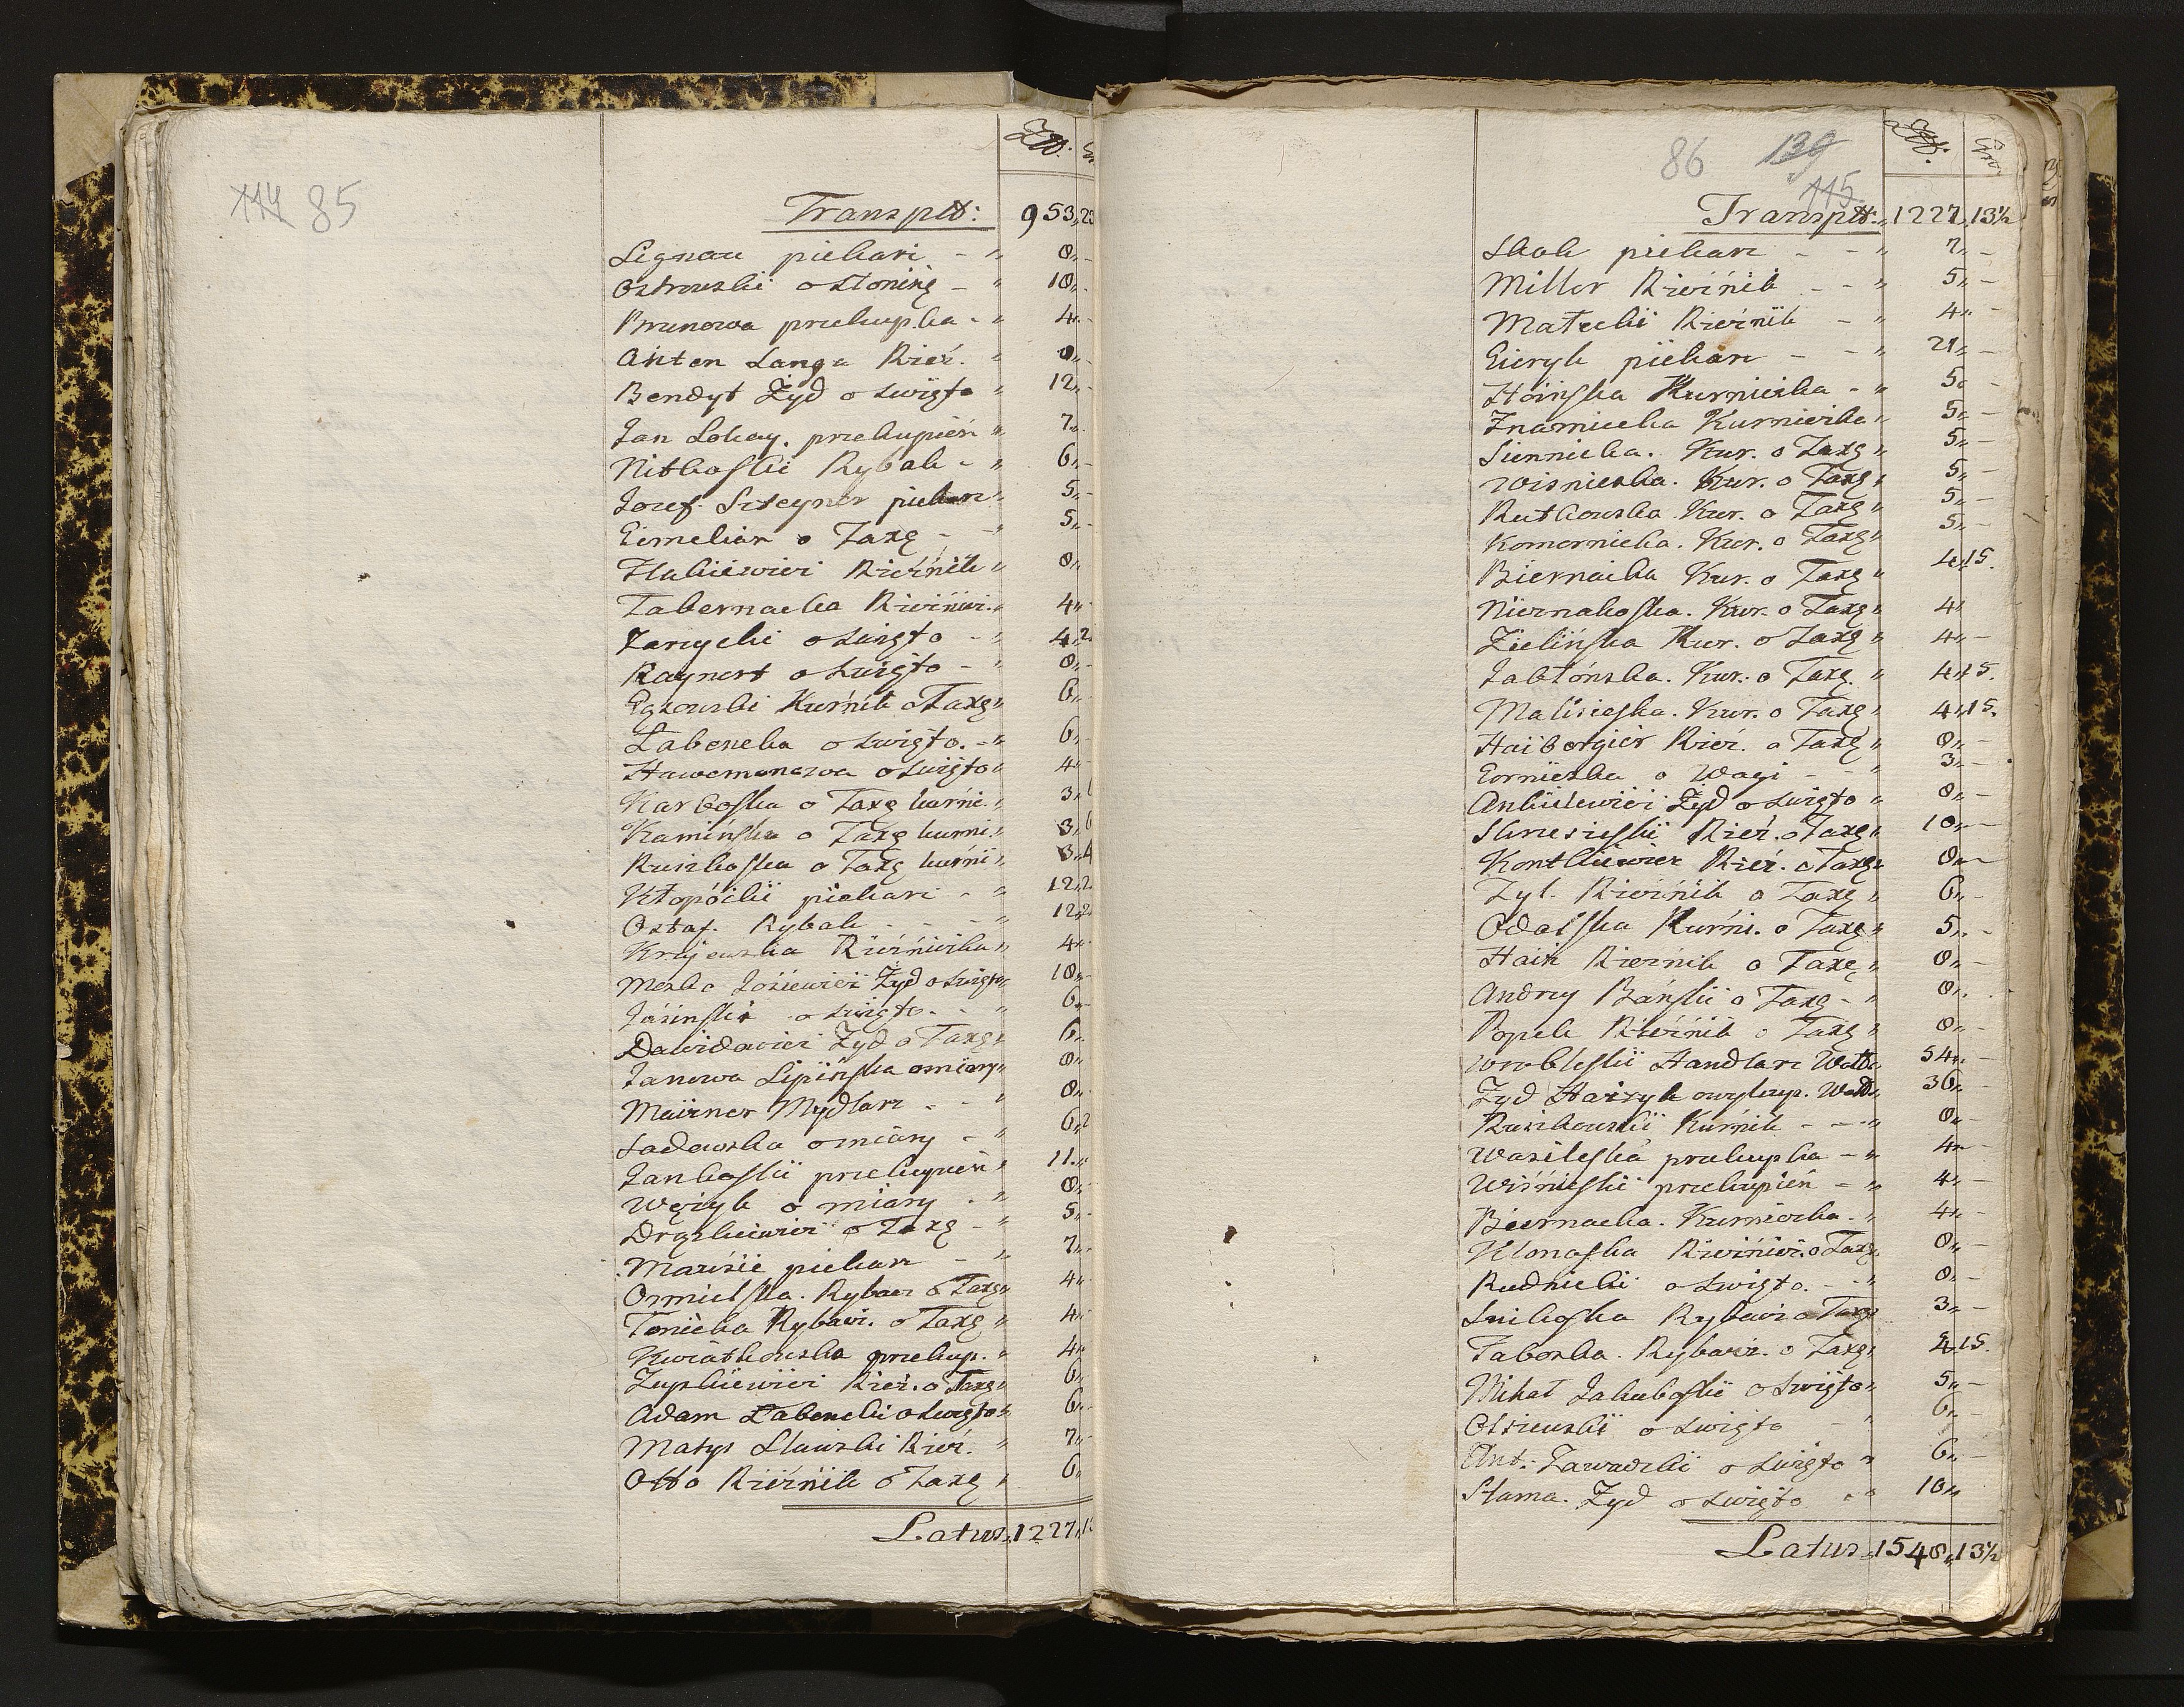 114 85
Złł: Gr
Transplt: 953,,23
Lignau piekarz - " 8,,-
Ostrowski o Słoninę - " 18,,-
Brunowa przekupka - " 4,,-
Anton Langa Rzeź. " 8,,-
Bendyt Żyd o Swięto " 12,,-
Jan Lokay. przekupień " 7,,
Nitkoski Rybak - " 6,,-
Jozef Szteyner piekarz " 5,,-
Eimeliar o Taxę - " 5,,-
Hakiewicz Rzeźnik " 8,,
Tabernacka Rzeźnicz. " 4,,-
Zarzycki o Swięto - " 4,,2
Raynert o Swięto - " 8,,-
Kurnik o Taxę " 6,,
Łabencka o Swięto. - " 6,,-
Hawemanowa o Swięto " 4,,
Karboska o Taxę kurni. " 3,,
Kamińska o Taxę kurni. " 3,,6
Ruszkoska o Taxę kurni " 3,,4
Kłopócki piekarz - " 12,,2
Ostaf. Rybak - - " 12,,2
Krajewska Rzeźniczka " 4,,-
Meska Josiewicz Żyd o Swięto " 18,,-
Jasinski o Swięto. - " 6,,-
Dawidowicz Żyd o Taxę " 6,,
Janowa Lipińska o miary " 8,,
Meizner Mydlarz - " 8,,
Sadowska o miary - " 6,,2
Jankoski przekupień " 11,,
Węzyk o miary - " 8,,
Drążkiewicz o Taxę - " 5,,-
piekarz - " 7,,-
Ozmielska. Rybacz. o Taxę " 4,,
Tonicka Rybacz. o Taxę " 4,,
Kwiatkowska przekup. " 4,,
Zupkiewicz Rzeź. o Taxę " 6,,
Adam Łabencki o Swięto " 6,,-
Matys Sławski Rzeź. " 7,,-
Otto Rzeźnik o Taxę " 6,,
Latus,,1227,,13
86 139
115
Złł: Gr
Transplt: ,,1227,,13½
Skok piekarz - - " 7,,-
Miller Rzeźnik - - " 5,,-
Małecki Rzeźnik - " 4,,-
Gieryk piekarz - - " 21,,-
Hoinska Kurniczka - " 5,, -
Znamiecka Kurniczka " 5,,-
Siennicka. Kur. o Taxę " 5,,-
Wisnieska. Kur. o Taxę " 5,,-
Rutkowska Kur. o Taxę " 5,,-
Komornicka. Kur. o Taxę " 5,,-
Biernacka Kur. o Taxę " 4,,15.
Kur. o Taxę " 4,,
Zielińska Kur. o Taxę " 4,,-
Jabłónska. Kur. o Taxę. " 4,,15.
Malisieska. Kur. o Taxę " 4,,15.
Haibergier Rzeź. o Taxę " 8,,-
Gorniczka o Wagi - - " 3,,-
Ankielewicz Żyd o Swięto " 8,,-
Rzeź. o Taxę " 18,,-
Rzeź. o Taxę " 8,,-
Zyl. Rzeźnik o Taxę " 6,,-
Odalska Kurni. o Taxę " 5,,-
Hain Rzeźnik o Taxę " 8,,-
Andrzy Bański o Taxę - " 8,,.
Popek Rzeźnik o Taxę " 8,,-
Wrobleski Handlarz Wołł. 54,,-
Żyd Haizyk o wykup. Wołł. 36,,-
Ruszkowski Kurnik - - " 8,,-
Wasileska przekupka - " 4,,-
Wiśnieski przekupień - " 4,,-
Biernacka. Kurniczka. " 4,,-
Klonoska Rzeźnicz. o Taxę 8,,-
Rudnicki o Swięto. - - " 8,,-
Rybacz. o Taxę 3,,-
Taborska. Rybacz. o Taxę " 4,,15.
Michał Jakuboski o Swięto " 5,,-
Olszewski o Swięto - " 6,,-
Ant: Zawadzki o Swięto " 6,,-
Słama. Żyd o Swięto " 18,,
Latus,,1548,,13½